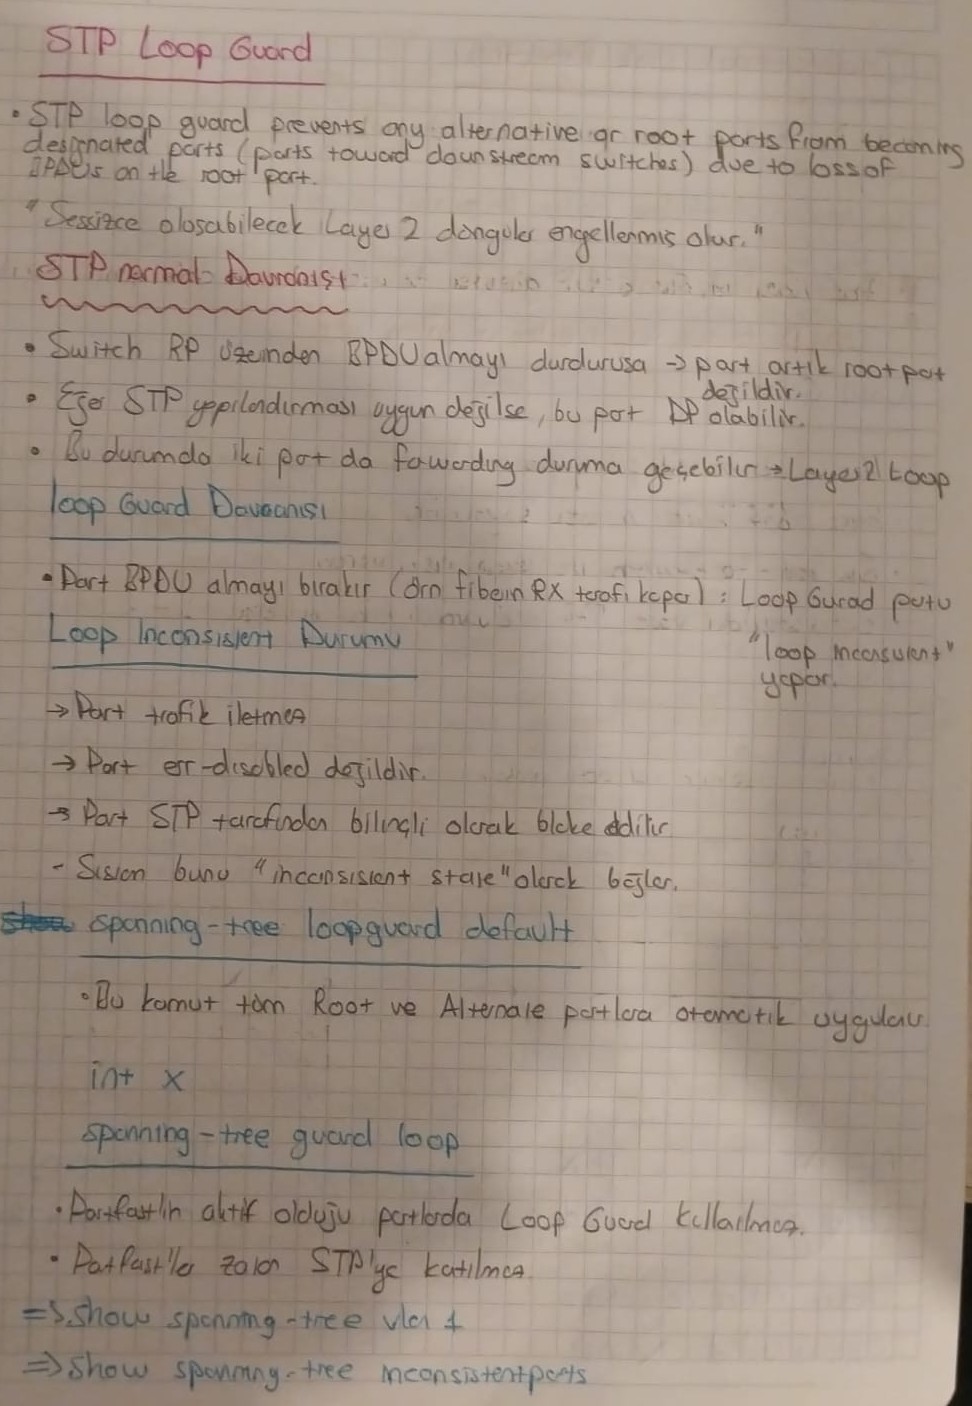 STP Loop Guard
• STP loop guard prevents any alternative or root ports from becoming
designated ports (ports toward downstream switches) due to loss of
BPDUs on the root port.
"Sessizce oluşabilecek Layer 2 döngüler engellenmiş olur."
STP normal Davranışı
• Switch RP üzeinden BPDU almayı durdurusa → port artık root port
değildir.
• Eğer STP yapılandırması uygun değilse, bu port DP olabilir.
• Bu durumda iki port da forwarding duruma geçebilir → Layer 2 Loop
loop Guard Davranışı
• Port BPDU almayı bırakır (örn fiberin RX tarafı kopar) : Loop Gurad portu
"loop inconsistent"
yapar.
Loop Inconsistent Durumu
→ Port trafik iletmez
→ Port err-disabled değildir.
→ Port STP tarafından bilinçli olarak bloke edilir
- Sistem bunu "inconsistent state" olarak bağlar.
spanning-tree loopguard default
• Bu komut tüm Root ve Alternate portlara otomatik uygulanır
int x
spanning-tree guard loop
• Portfast'in aktif olduğu portlarda Loop Guard kullanılmaz.
• Portfast'ler zaten STP'ye katılmaz
=> show spanning-tree vlan 1
=> show spanning-tree inconsistentports